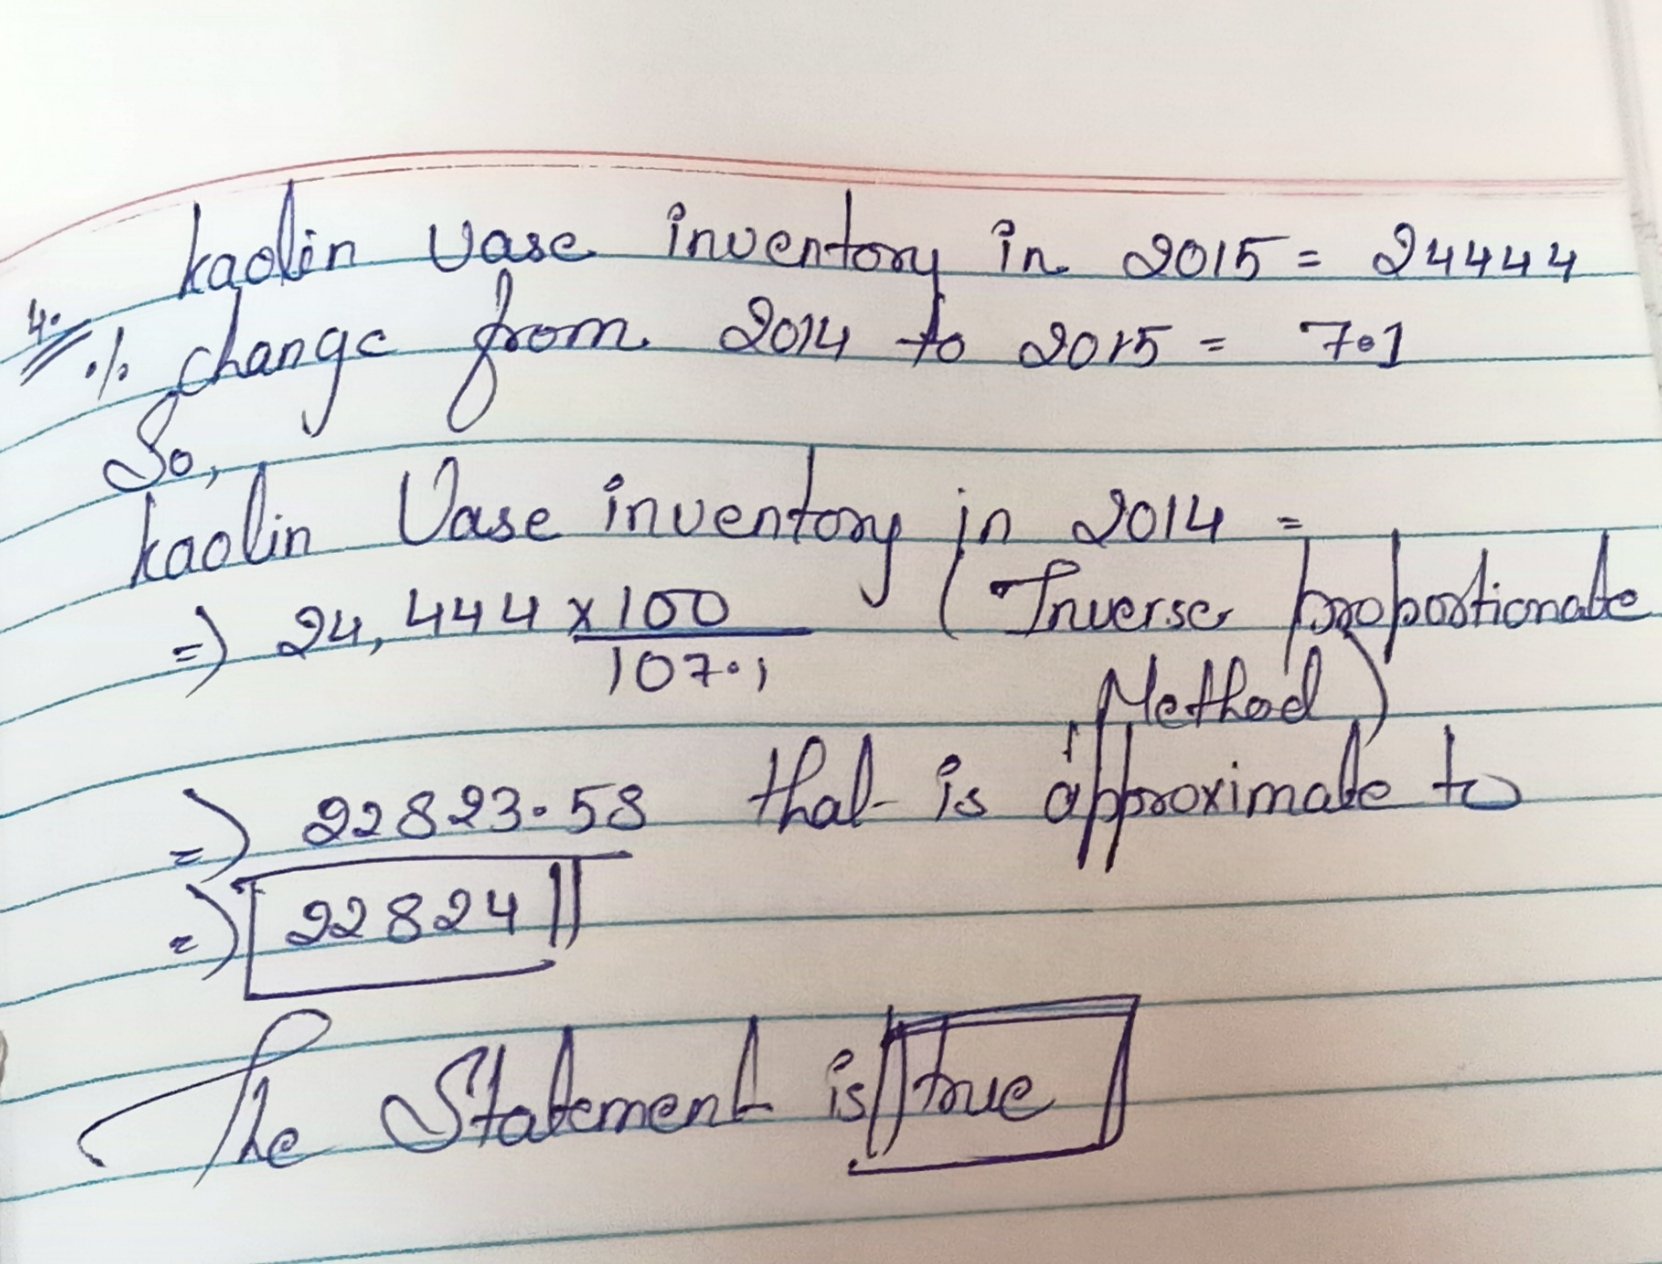 Kaolin Vase inventory in 2015 = 24444
4. % change from 2014 to 2015 = 7.1
So,
Kaolin Vase inventory in 2014 =
=) 24,444 x 100 / 107.1 (Inverse proportionate
Method)
=) 22823.58 that is approximate to
=) 22824
The Statement is true